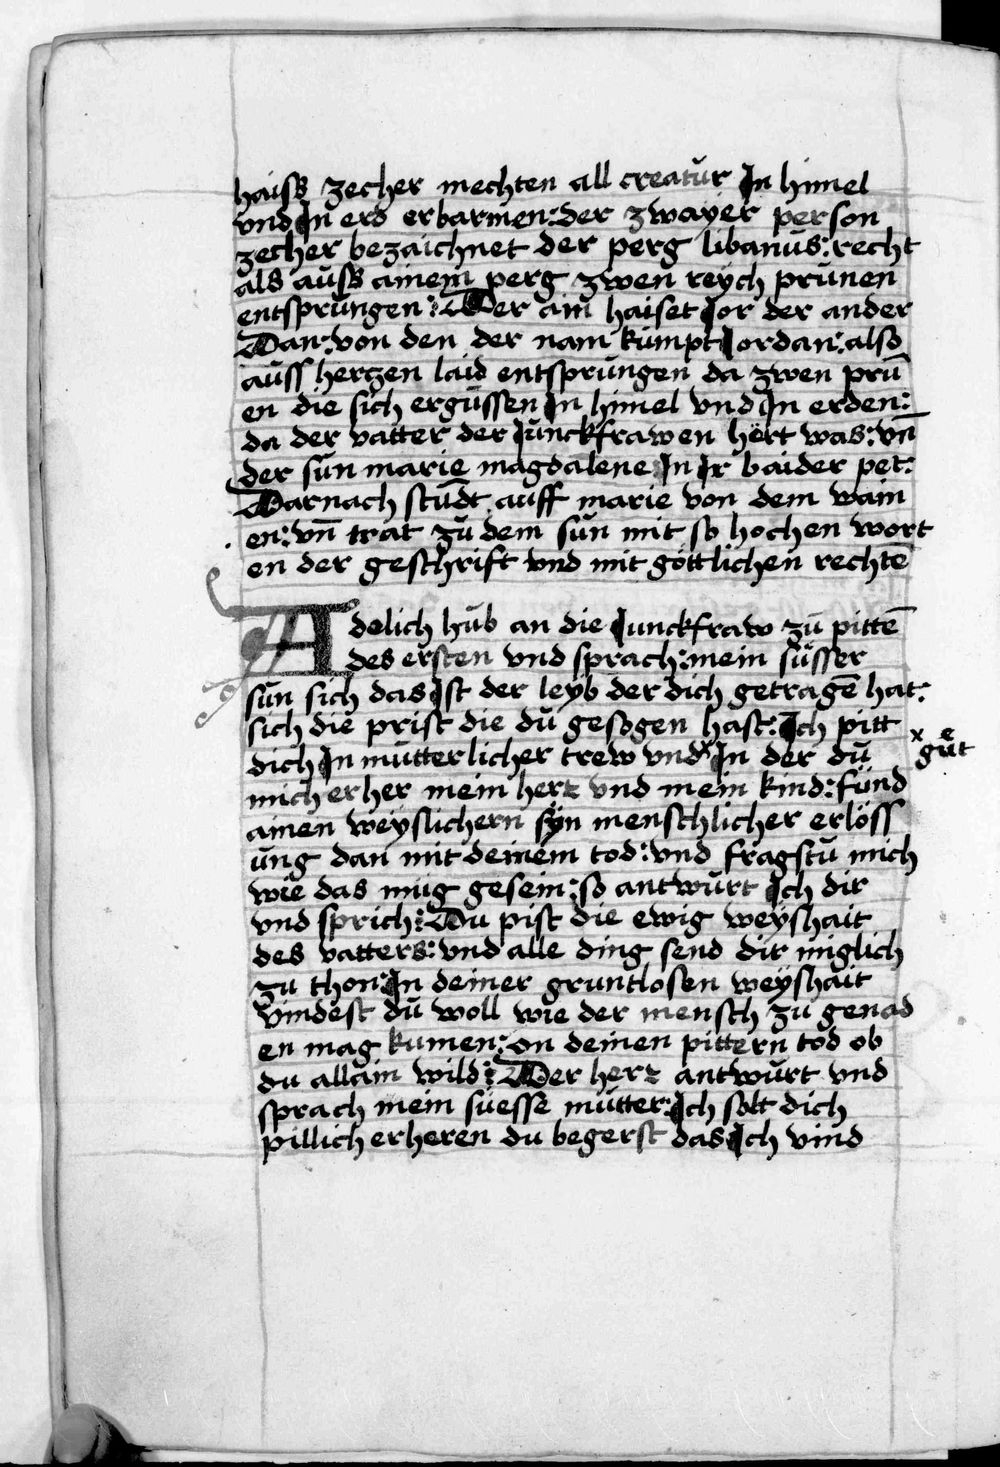 haiss zecher mechten all creatur In himel
vnd In erd erbarmen: der zwayer person
zecher bezaichnet der perg libanus: recht
als auss ainem perg zwen reych prunen
entsprungen: Der ain haiset Jor der ander
Dan: von den der nam kumpt Jordan: also
auss herzen laid entsprungen da zwen prūn
en die sich ergussen In himel vnd In erden:
da der vatter der Junckfrawen hört was: vn̄
der sun marie magdalene In Ir baider pet:
Darnach stūdt auff marie von dem wain
en: vn̄ trat zu dem sun mit so hochen wort
en der geschrift vnd mit göttlichen rechtē
Adelich hub an die Junckfraw zu pittē
des ersten vnd sprach: mein süsser
sun sich das Ist der leyb der dich getragē hat:
sich die prist die du gesogen hast: Ich pitt
dich In mutterlicher trew vnd x In der du
x güt
mich erher mein herz vnd mein kind: fünd
ainen weyslichern syn menschlicher erlöss
ung dan mit deinem tod: vnd fragstu mich
wie das müg gesein: so antwurt Ich dir
vnd sprich: Du pist die ewig weyshait
des vatters: vnd alle ding send dir miglich
zu thon: In deiner gruntlosen weyshait
vindest du woll wie der mensch zu genad
en mag kumen: on deinen pittern tod ob
du allain wild: Der herz antwurt vnd
sprach mein süesse mutter: Ich solt dich
pillich erheren du begerst das Ich vind